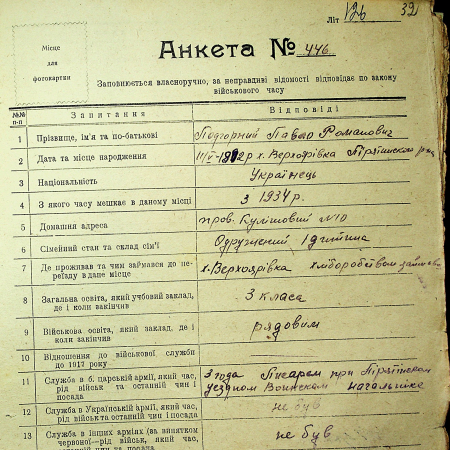 Літ 126 32
Місце
для
фотокартки
Анкета № 446
Заповнюється власноручно, за неправдиві відомості відповідає по закону
військового часу
№№ п-п Запитання Відповіді
1 Прізвище, ім'я та по-батькові Подгорний Павло Романович
2 Дата та місце народження х. Верхоярівка
3 Національність Українець
4 З якого часу мешкає в даному місці з 1934 р.
5 Домашня адреса пров. Кулішовий №10
6 Сімейний стан та склад сім'ї Одружений 1 дитина
7 Де проживав та чим займався до пе-
реїзду в дане місце х. Верхоярівка хліборобством
8 Загальна освіта, який учбовий заклад,
де і коли закінчив 3 класа
9 Військова освіта, який заклад, де і
коли закінчив рядовим
10 Відношення до військової служби
до 1917 року
11 Служба в б. царській армії, який час,
рід військ та останній чин і
посада 3 года Писарем при Пірятінском
уездном Воинском начальніке
12 Служба в Українській армії, який час,
рід військ та останній чин і посада не був
13 Служба в інших арміях (за винятком
червоної—рід військ, який час,
останній чин та посада не був